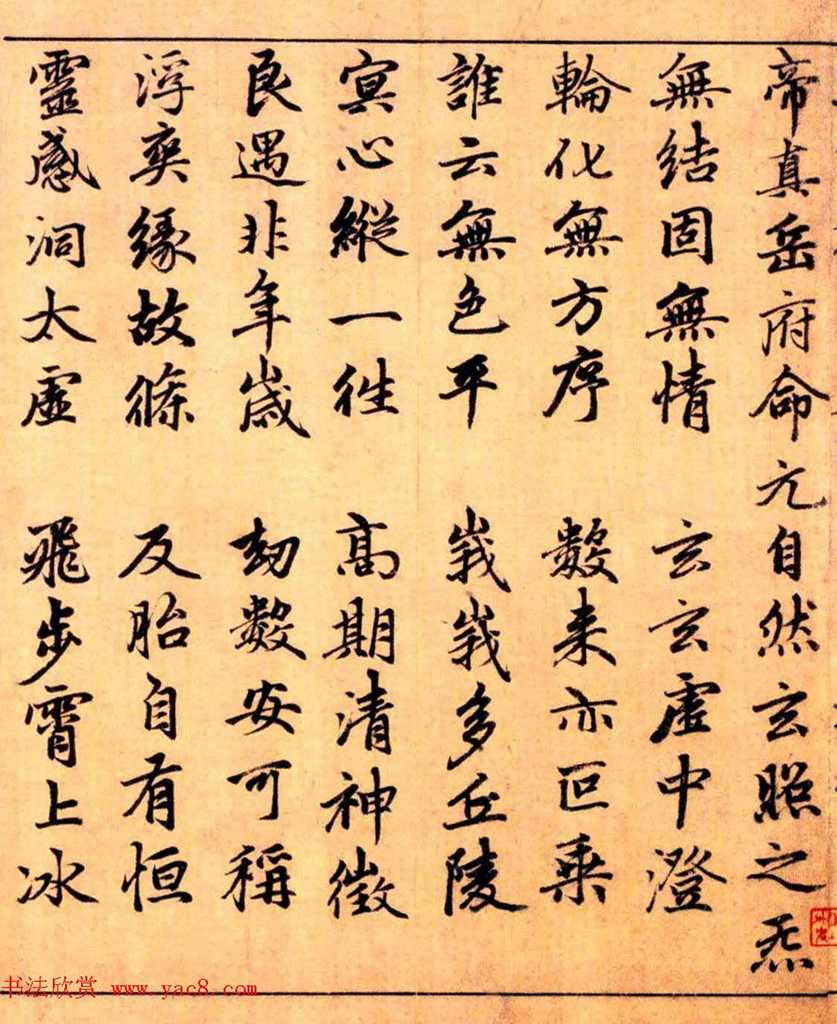 帝真岳府命元自然玄照之炁
無結固無情 玄玄虛中澄
輪化無方序 數来亦叵乗
誰云無色平 峩峩多丘陵
冥心縱一徃 高期清神徵
良遇非年歲 劫數安可稱
浮爽緣故條 反胎自有恒
靈感洞太虛 飛步霄上冰
书法欣赏 www.yac8.com